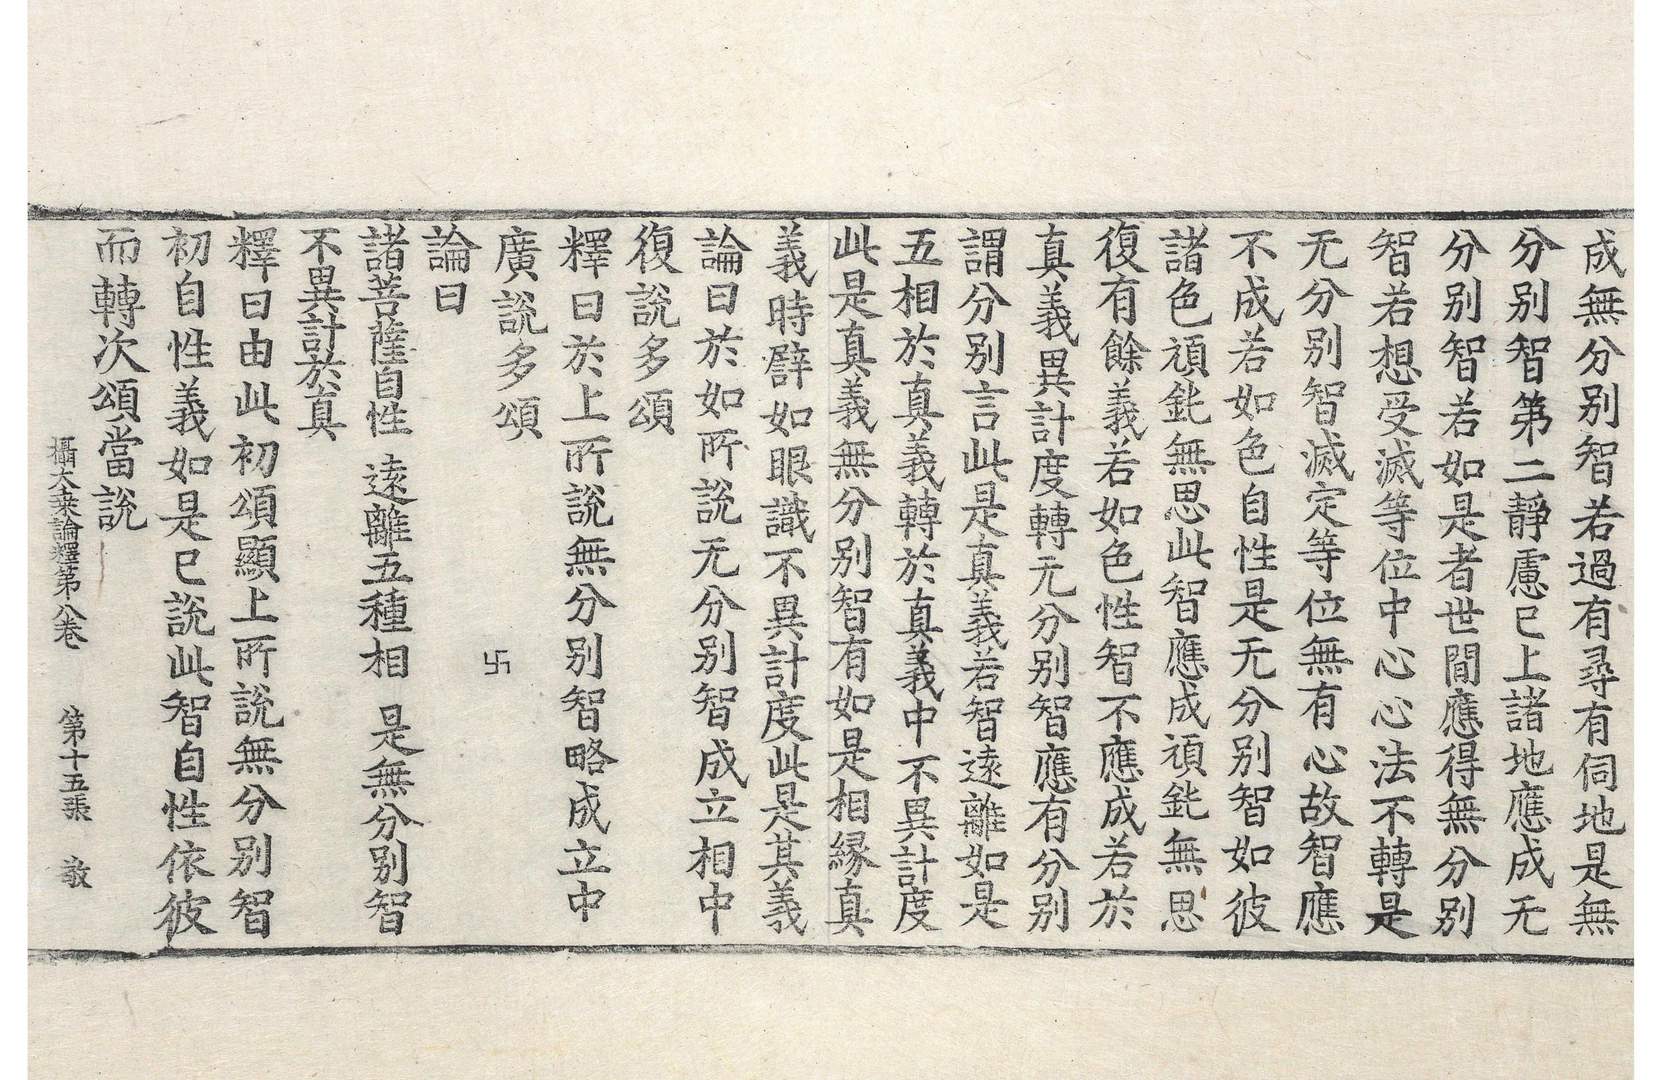 成無分别智若過有尋有伺地是無
分别智第二靜慮已上諸地應成无
分别智若如是者世間應得無分别
智若想受滅等位中心心法不轉是
无分别智滅定等位無有心故智應
不成若如色自性是无分别智如彼
諸色頑鈍無思此智應成頑鈍無思
復有餘義若如色性智不應成若於
真義異計度轉无分别智應有分别
謂分别言此是真義若智遠離如是
五相於真義轉於真義中不異計度
此是真義無分别智有如是相緣真
義時譬如眼識不異計度此是其義
論曰於如所說无分别智成立相中
復說多頌
釋曰於上所說無分别智略成立中
廣說多頌 卐
論曰
諸菩薩自性 遠離五種相 是無分别智
不異計於真
釋曰由此初頌顯上所說無分别智
初自性義如是已說此智自性依彼
而轉次頌當說
攝大乗論釋第八卷 第十五張 敬